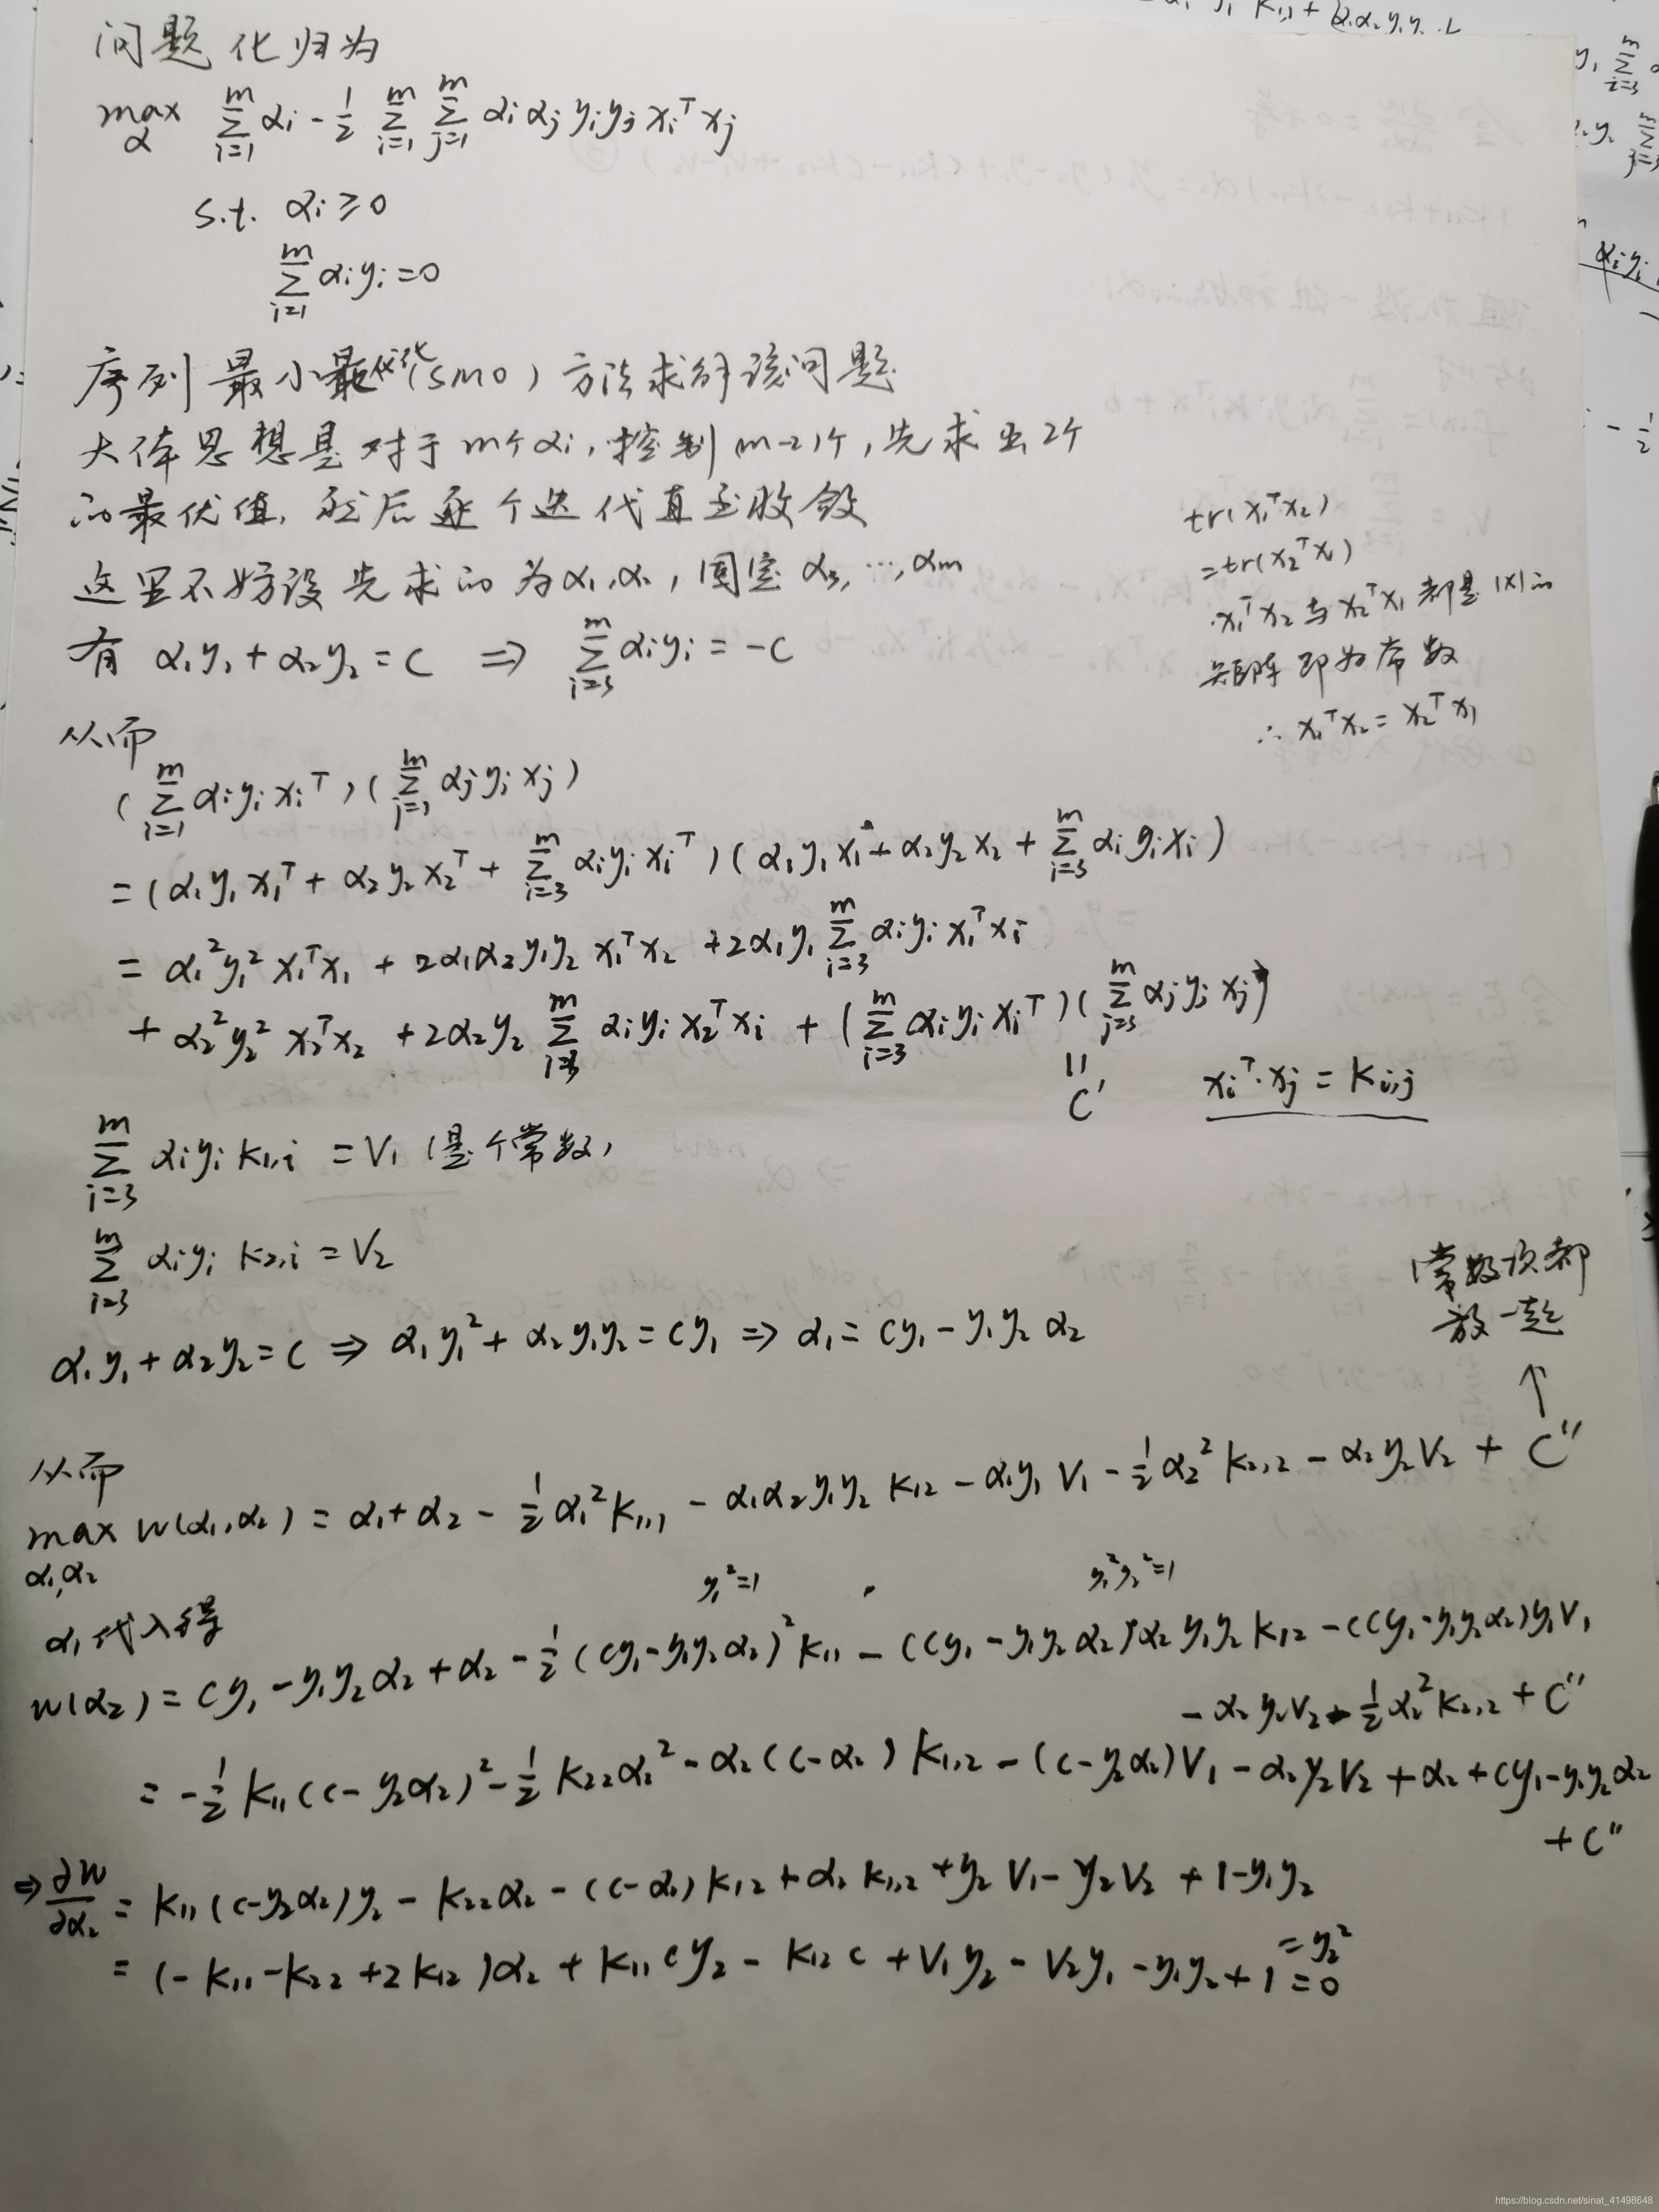 问题化归为
max_α Σ_{i=1}^{m} α_i - 1/2 Σ_{i=1}^{m} Σ_{j=1}^{m} α_i α_j y_i y_j x_i^T x_j
s.t. α_i ≥ 0
Σ_{i=1}^{m} α_i y_i = 0
序列最小最优化(SMO)方法求解该问题
大体思想是对于m个α_i,控制m-2个,先求出2个
的最优值,然后逐个迭代直至收敛
这里不妨设先求的为α_1,α_2,固定α_3,…,α_m
有 α_1y_1 + α_2y_2 = C ⇒ Σ_{i=3}^{m} α_i y_i = -C
tr(x_1^T x_2)
= tr(x_2^T x_1)
x_1^T x_2 与 x_2^T x_1 都是 1×1的
矩阵即为常数
∴ x_1^T x_2 = x_2^T x_1
从而
(Σ_{i=1}^{m} α_i y_i x_i^T)(Σ_{j=1}^{m} α_j y_j x_j)
= (α_1 y_1 x_1^T + α_2 y_2 x_2^T + Σ_{i=3}^{m} α_i y_i x_i^T)(α_1 y_1 x_1 + α_2 y_2 x_2 + Σ_{i=3}^{m} α_i y_i x_i)
= α_1^2 y_1^2 x_1^T x_1 + 2α_1α_2 y_1y_2 x_1^T x_2 + 2α_1 y_1 Σ_{i=3}^{m} α_i y_i x_1^T x_i
+ α_2^2 y_2^2 x_2^T x_2 + 2α_2 y_2 Σ_{i=3}^{m} α_i y_i x_2^T x_i + (Σ_{i=3}^{m} α_i y_i x_i^T)(Σ_{j=3}^{m} α_j y_j x_j)
= C'
x_i^T · x_j = K_{i,j}
Σ_{i=3}^{m} α_i y_i K_{1,i} = V_1 (是个常数)
Σ_{i=3}^{m} α_i y_i K_{2,i} = V_2
常数项都
放一起
↑
α_1y_1 + α_2y_2 = C ⇒ α_1y_1^2 + α_2y_1y_2 = Cy_1 ⇒ α_1 = Cy_1 - y_1y_2α_2
从而
max_{α_1,α_2} W(α_1,α_2) = α_1 + α_2 - 1/2 α_1^2 K_{1,1} - α_1α_2y_1y_2 K_{12} - α_1y_1 V_1 - 1/2 α_2^2 K_{2,2} - α_2y_2V_2 + C''
y_1^2 = 1
y_1^2 y_2^2 = 1
α_1代入得
W(α_2) = Cy_1 - y_1y_2α_2 + α_2 - 1/2 (Cy_1 - y_1y_2α_2)^2 K_{11} - (Cy_1 - y_1y_2α_2)α_2 y_1y_2 K_{12} - (Cy_1 - y_1y_2α_2)y_1V_1
- α_2y_2V_2 - 1/2 α_2^2 K_{2,2} + C''
= -1/2 K_{11}(C - y_2α_2)^2 - 1/2 K_{22}α_2^2 - α_2(C - α_2)K_{1,2} - (C - y_2α_2)V_1 - α_2y_2V_2 + α_2 + Cy_1 - y_1y_2α_2
+ C''
⇒ ∂W/∂α_2 = K_{11}(C - y_2α_2)y_2 - K_{22}α_2 - (C - α_2)K_{12} + α_2K_{1,2} + y_2V_1 - y_2V_2 + 1 - y_1y_2
= y_2^2
= (-K_{11} - K_{22} + 2K_{12})α_2 + K_{11}Cy_2 - K_{12}C + V_1y_2 - V_2y_1 - y_1y_2 + 1 = 0
https://blog.csdn.net/sinat_41498648